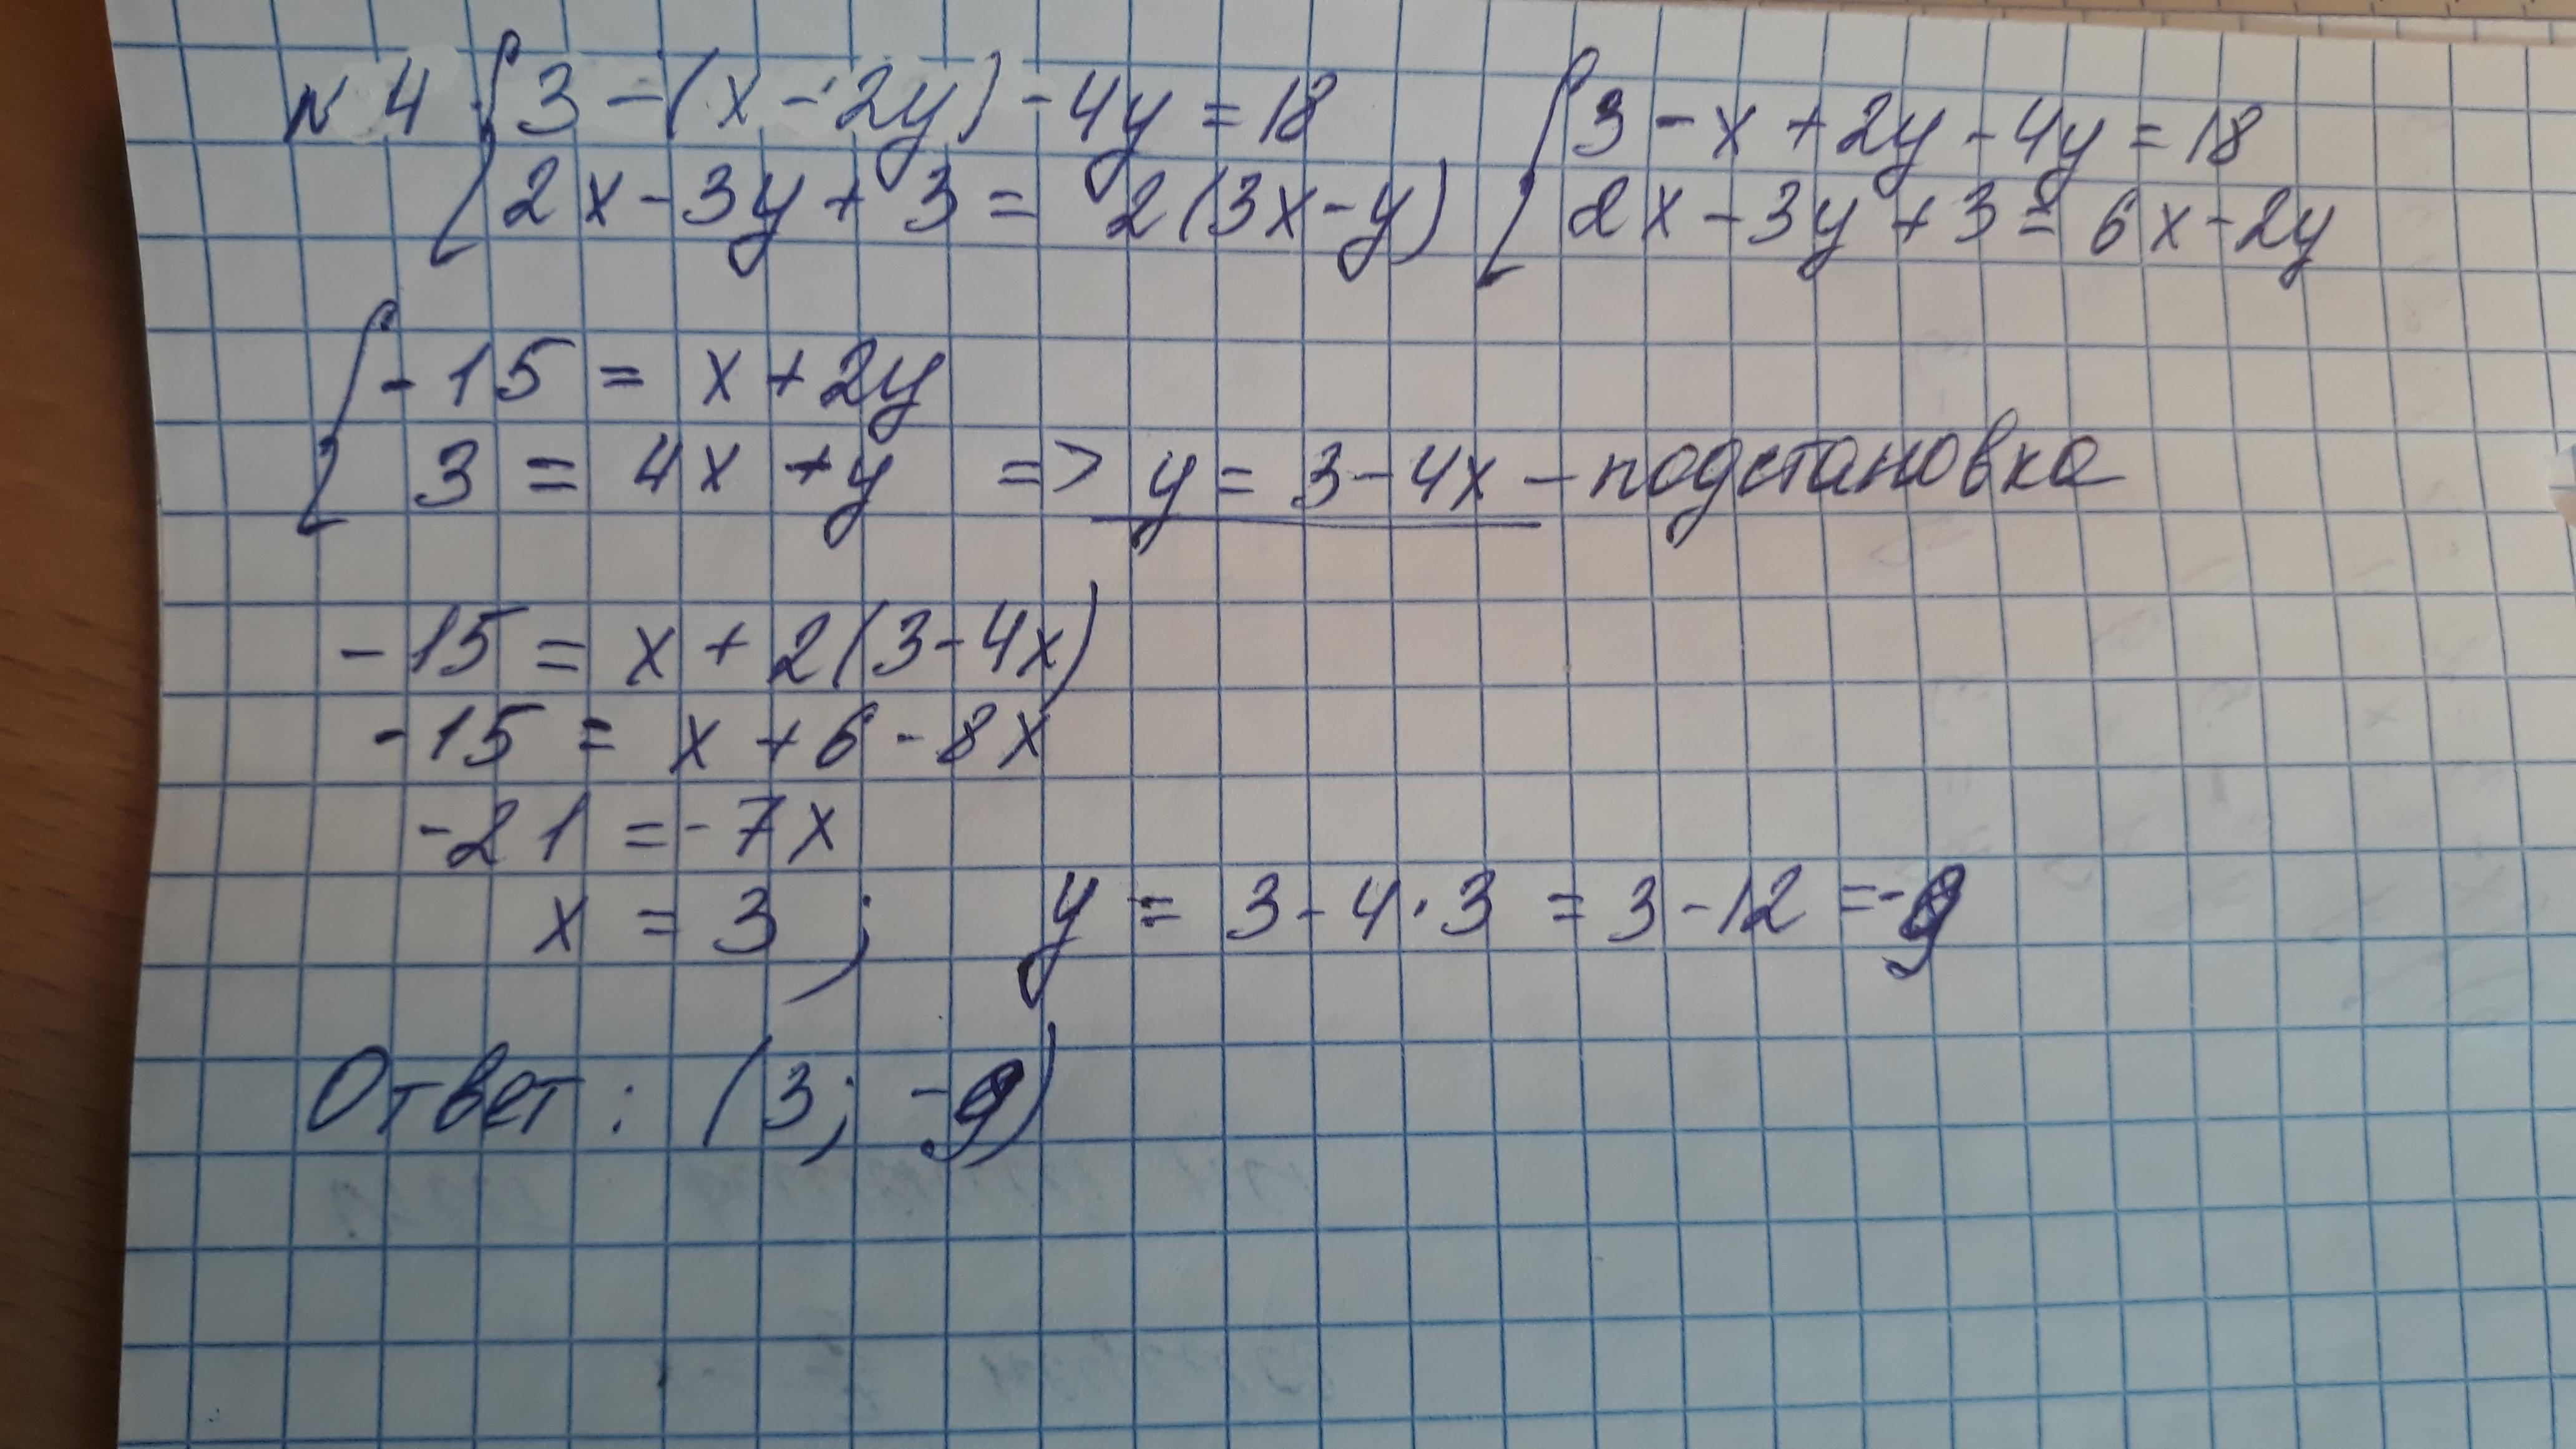 № 4 { 3 - (x - 2y) - 4y = 18 { 3 - x + 2y - 4y = 18
2x - 3y + 3 = 2(3x - y) 2x - 3y + 3 = 6x - 2y
{ -15 = x + 2y
3 = 4x + y => y = 3 - 4x - подстановка
-15 = x + 2(3 - 4x)
-15 = x + 6 - 8x
-21 = -7x
x = 3 ; y = 3 - 4 · 3 = 3 - 12 = -9
Ответ : (3; -9)